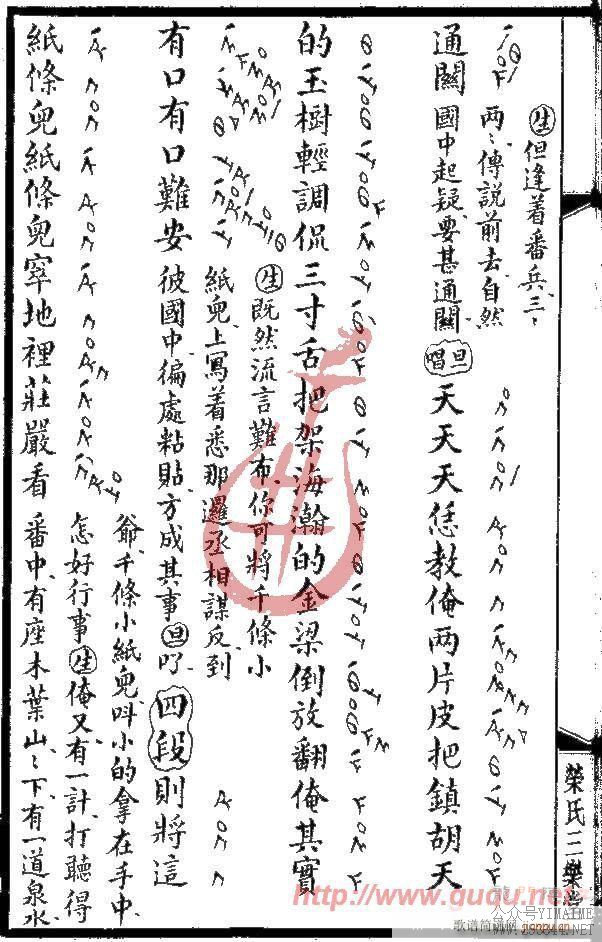 生但逢着番兵、三〻
两〻傳說前去、自然
通關國中起疑、要甚通關旦唱天天天恁教俺两片皮把鎮胡天
的玉樹輕調侃三寸舌把架海瀚的金梁倒放翻俺其實
生既然流言難布、你可將千條小
紙兒、上寫着悉那邏丞相謀反、到
有口有口難安彼國中、徧處粘貼、方成其事旦四段則將這
爺、千條小紙兒、呌小的拿在手中、
怎好行事生俺又有一計、打聽得
紙條兒紙條兒窣地裡莊嚴看番中、有座木葉山、〻下有一道泉水
榮氏三樂
http://www.guqu.net
公众号YIMAIME
歌谱简谱网